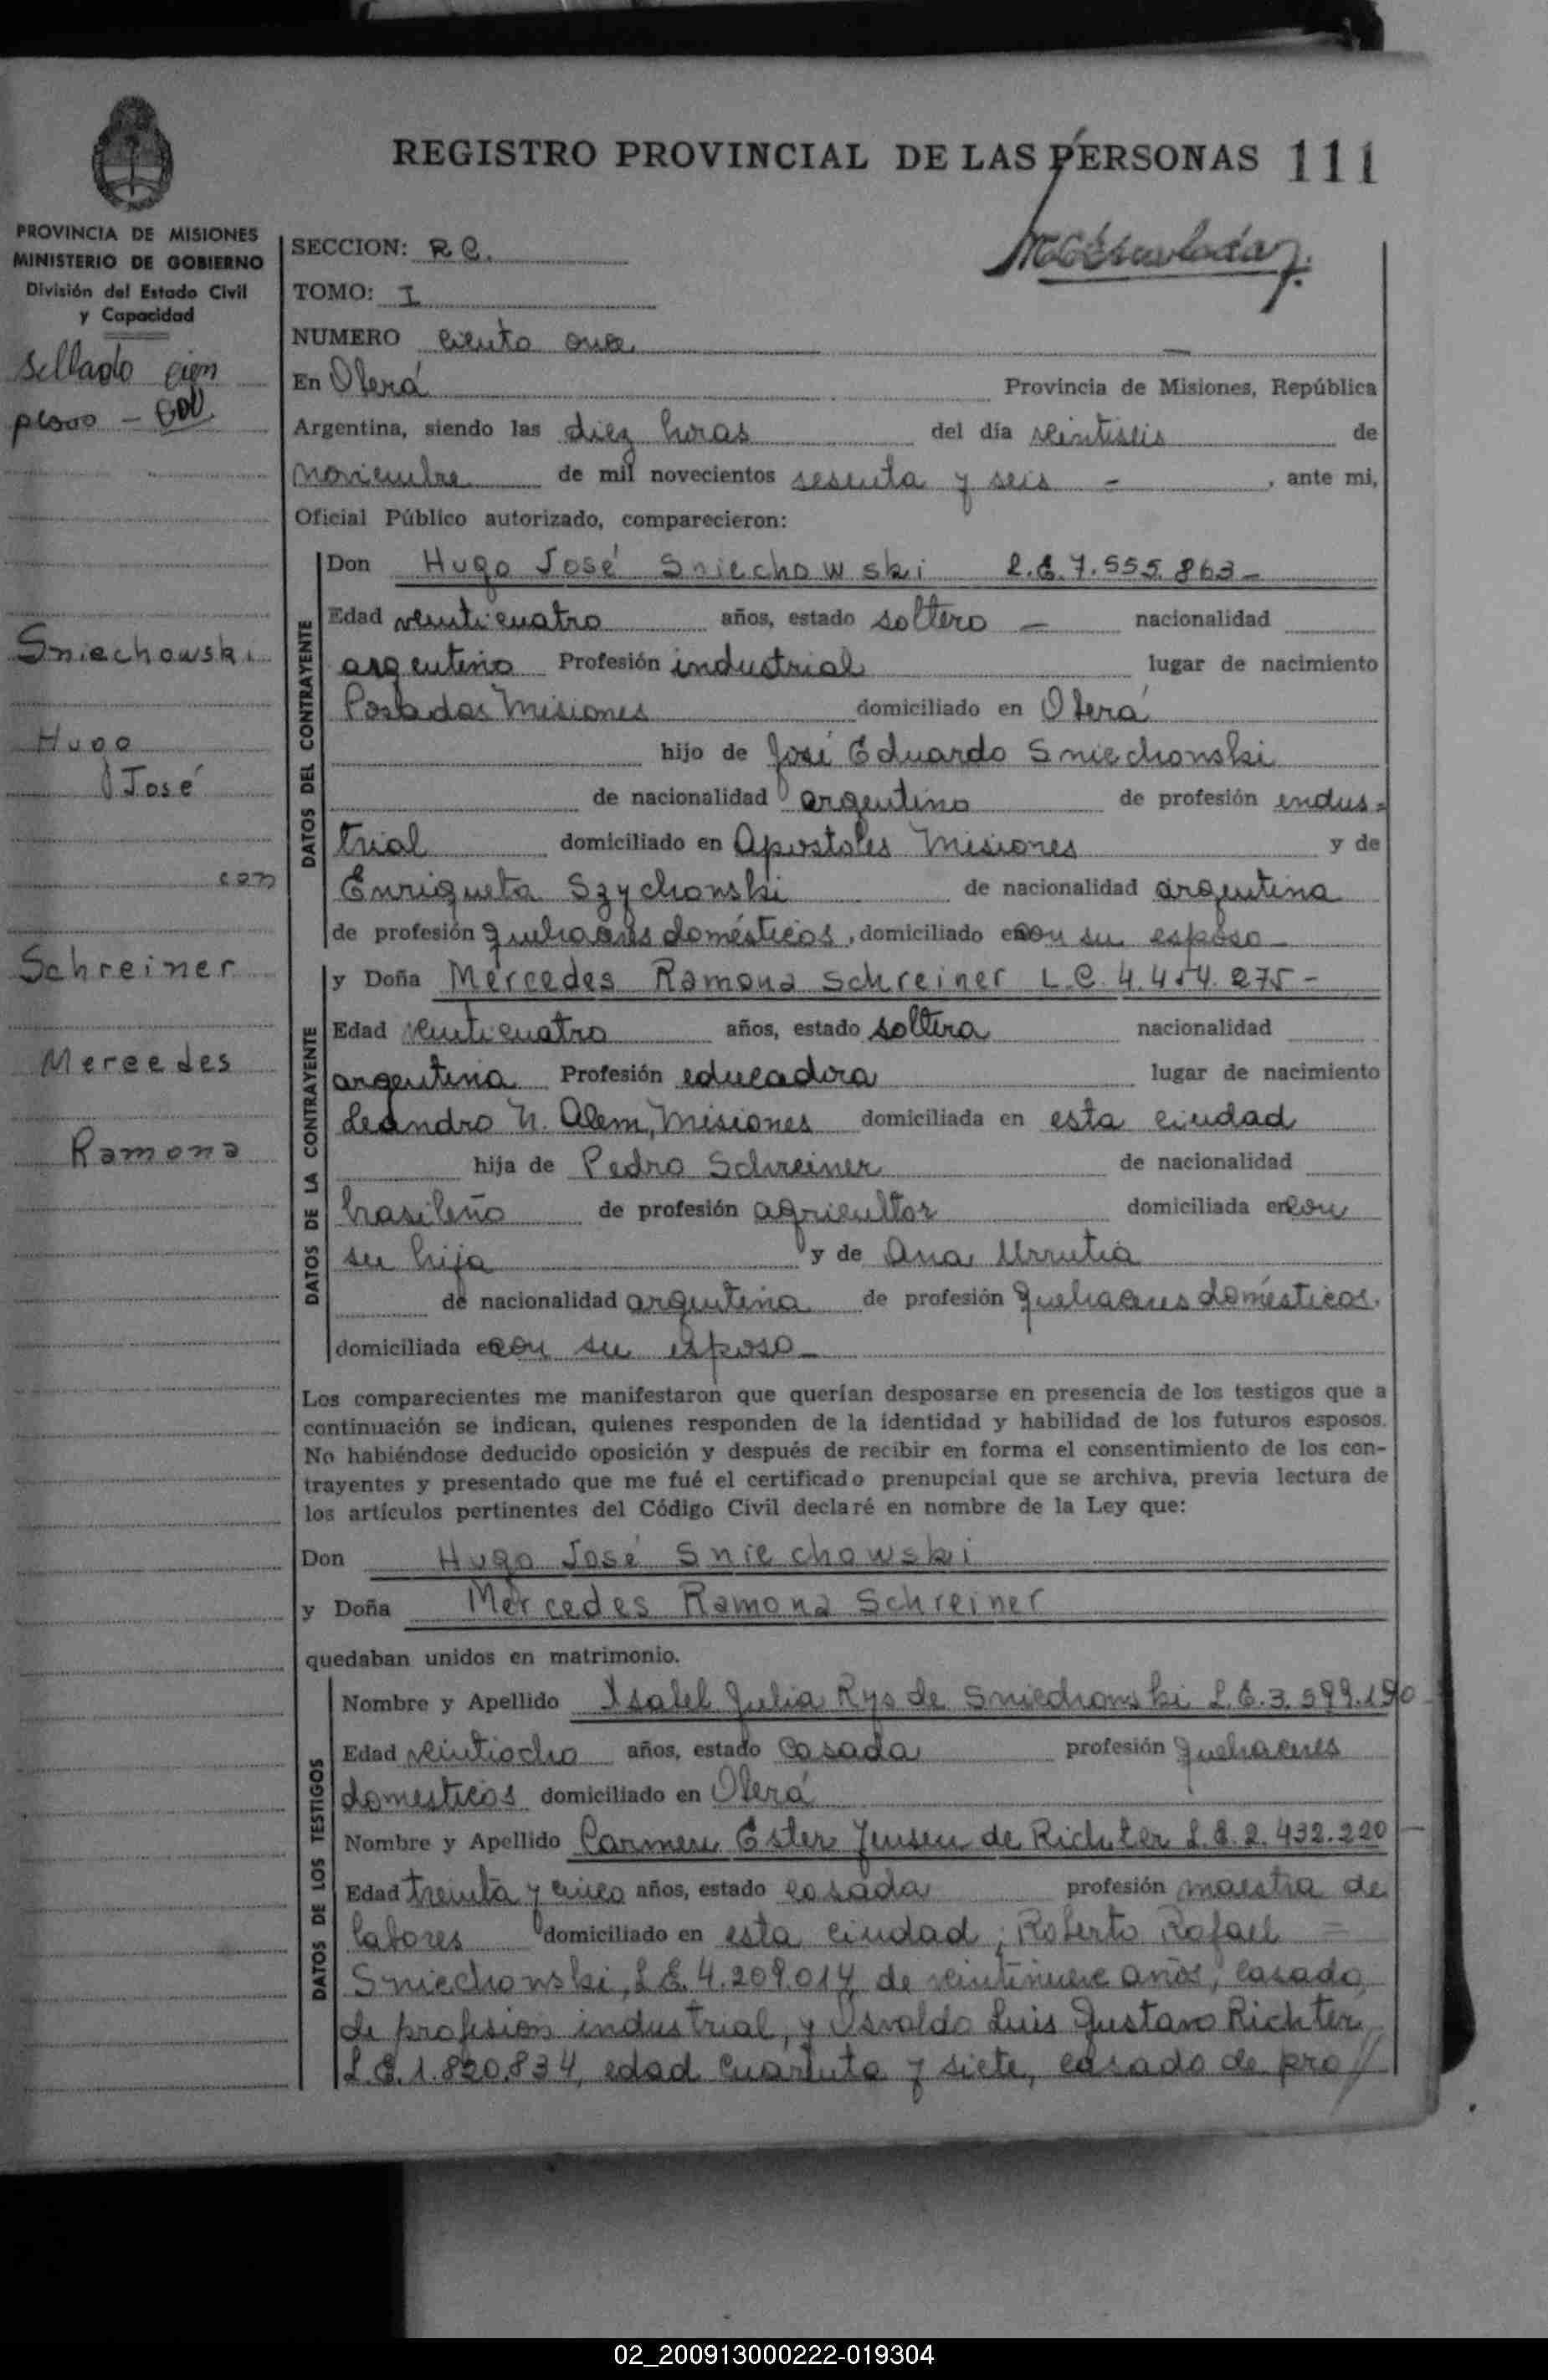 REGISTRO PROVINCIAL DE LAS PERSONAS 111
PROVINCIA DE MISIONES
MINISTERIO DE GOBIERNO
División del Estado Civil
y Capacidad
Sellado cien
pesos -
Sniechowski
Hugo
José
con
Schreiner
Mercedes
Ramona
SECCION: R C.
TOMO: I
NUMERO ciento once
En Oberá Provincia de Misiones, República
Argentina, siendo las diez horas del día veintiseis de
noviembre de mil novecientos sesenta y seis - , ante mi,
Oficial Público autorizado, comparecieron:
DATOS DEL CONTRAYENTE
Don Hugo José Sniechowski L.E. 7.555.863-
Edad veinticuatro años, estado soltero - nacionalidad
argentino Profesión industrial lugar de nacimiento
Posadas Misiones domiciliado en Oberá
hijo de José Eduardo Sniechowski
de nacionalidad argentino de profesión indus-
trial domiciliado en Apostoles Misiones y de
Enriqueta Szychowski de nacionalidad argentina
de profesión quehaceres domésticos, domiciliado con su esposo
DATOS DE LA CONTRAYENTE
y Doña Mercedes Ramona Schreiner L.C. 4.454.275-
Edad veinticuatro años, estado soltera nacionalidad
argentina Profesión educadora lugar de nacimiento
Leandro N. Alem, Misiones domiciliada en esta ciudad
hija de Pedro Schreiner de nacionalidad
brasileño de profesión agricultor domiciliada en con
su hija y de Ana Urrutia
de nacionalidad argentina de profesión quehaceres domésticos.
domiciliada en con su esposo-
Los comparecientes me manifestaron que querían desposarse en presencia de los testigos que a
continuación se indican, quienes responden de la identidad y habilidad de los futuros esposos.
No habiéndose deducido oposición y después de recibir en forma el consentimiento de los con-
trayentes y presentado que me fué el certificado prenupcial que se archiva, previa lectura de
los artículos pertinentes del Código Civil declaré en nombre de la Ley que:
Don Hugo José Sniechowski
y Doña Mercedes Ramona Schreiner
quedaban unidos en matrimonio.
DATOS DE LOS TESTIGOS
Nombre y Apellido Ysabel Julia Rys de Sniechowski L.C. 3.599.190
Edad veintiocho años, estado casada profesión quehaceres
domesticos domiciliado en Oberá
Nombre y Apellido Carmen Ester Jensen de Richter L.C. 2.432.220
Edad treinta y cinco años, estado casada profesión maestra de
labores domiciliado en esta ciudad; Roberto Rafael =
Sniechowski, L.E. 4.209.014, de veintinueve años, casado,
de profesión industrial, y Osvaldo Luis Gustavo Richter,
L.E. 1.820.834, edad cuarenta y siete, casado de pro //
02_200913000222-019304